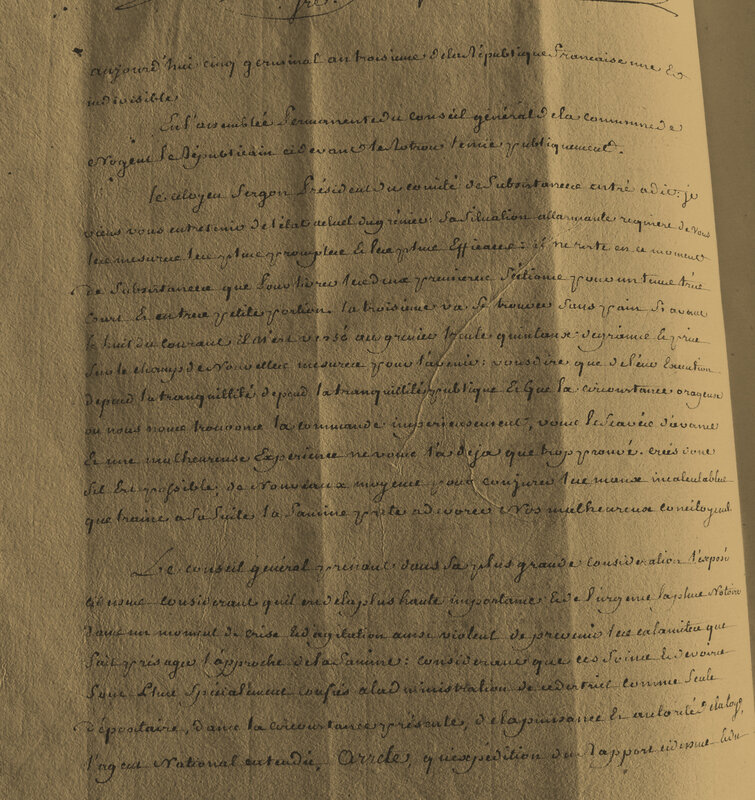 aujourd'hui cinq germinal an troisieme de la République francaise une Et
indivisible
En l'assemblée Permanente du conseil général de la commune de
Nogent le Républicain cidevant le Rotrou tenue publiquement.
le citoyen Sergon Président du comité de Subsistances entré a dit: je
viens vous entretenir de l'état actuel du grénier: sa situation allarmante requiere de vous
les mesures les plus promptes Et les plus Efficaces: il ne reste en ce moment
de Subsistances que pour livrer les deux premieres Séctions pour un tems très
court Et en tres petite portion. la troisieme va se trouver sans pain si avant
le huit du courant il n'est versé au grénier quintaux de grains Et pris
sur le champ de Nouvelles mesures pour l'avenir: vous dire que de leur Execution
depend la tranquillité depend la tranquillité publique Et que la circonstance orageuse
ou nous nous trouvons la commande impérieusement, vous le savés d'avance
Et une malheureuse Experience ne vous l'a deja que trop prouvé. créés donc
s'il Est possible, de Nouveaux moyens pour conjurer les maux incalculables
que traine a sa suite la famine prete a dévorer Nos malheureux concitoyens.
Le conseil général prenant dans sa plus grande consideration l'exposé
ci dessus considerant qu'il est de la plus haute importance Et de l'urgence la plus Notoire
dans un moment de crise Et d'agitation aussi violent de prévenir les calamités que
fait présager l'approche de la famine: considerant que ces soins Et devoirs
sont Etre spécialement confiés a l'administration de ce district comme seule
dépositaire, dans la circonstance présente, de la puissance Et autorité de la loy,
l'agent National entendu, Arrete, qu'expédition du Rapport cidessus Et du